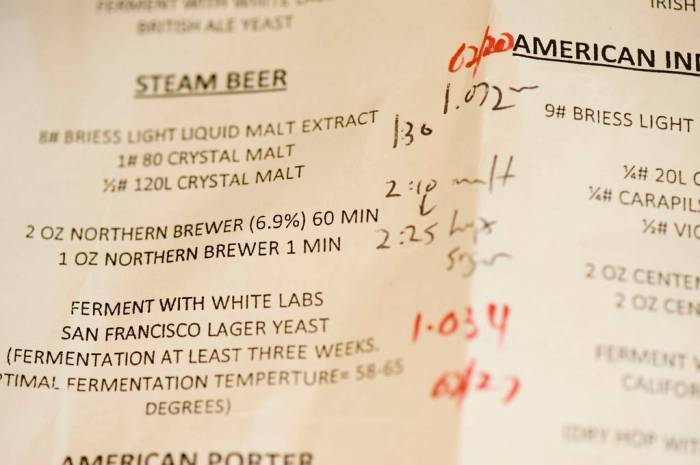 FERMENT WITH WHITE
BRITISH ALE YEAST
STEAM BEER
8# BRIESS LIGHT LIQUID MALT EXTRACT
1# 80 CRYSTAL MALT
½# 120L CRYSTAL MALT
2 OZ NORTHERN BREWER (6.9%) 60 MIN
1 OZ NORTHERN BREWER 1 MIN
FERMENT WITH WHITE LABS
SAN FRANCISCO LAGER YEAST
(FERMENTATION AT LEAST THREE WEEKS.
TIMAL FERMENTATION TEMPERTURE= 58-65
DEGREES)
AMERICAN PORTER
1.072
1:30
2:10 malt
2:25 hops
sugar
1.034
02/27
IRISH
AMERICAN IND
9# BRIESS LIGHT
¼# 20L C
¼# CARAPIL
½# VIC
2 OZ CENTE
2 OZ CEN
FERMENT W
CALIFOR
(DRY HOP WIT